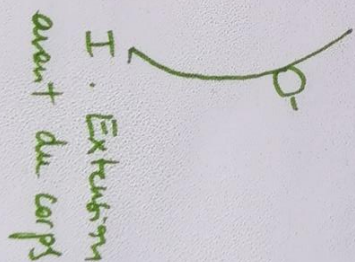 I. Extension
avant du corps